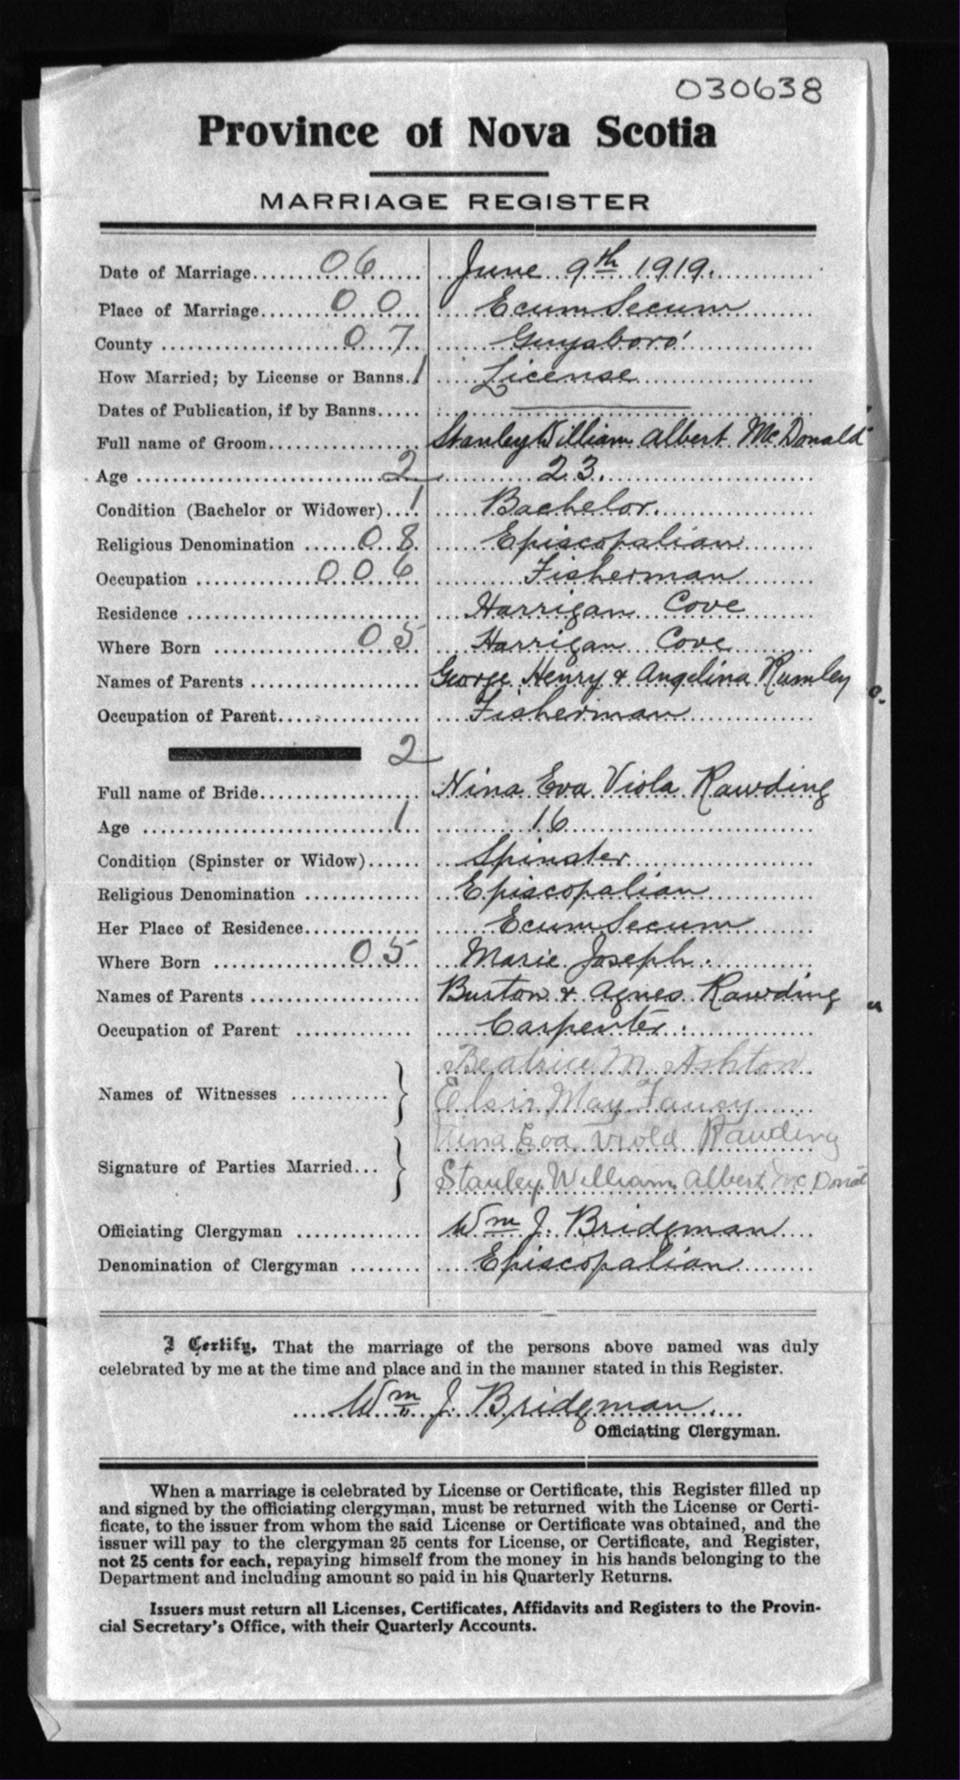 030638
Province of Nova Scotia
MARRIAGE REGISTER
Date of Marriage 06 June 9th 1919.
Place of Marriage 00 Ecum Secum
County 07 Guysboro'
How Married; by License or Banns 1 License
Dates of Publication, if by Banns
Full name of Groom Stanley William Albert McDonald
Age 2 23.
Condition (Bachelor or Widower) 1 Bachelor.
Religious Denomination 08 Episcopalian
Occupation 006 Fisherman
Residence Harrigan Cove
Where Born 05 Harrigan Cove
Names of Parents George Henry & Angelina Rumley
Occupation of Parent Fisherman
2
Full name of Bride Nina Eva Viola Rawding
Age 1 16
Condition (Spinster or Widow) Spinster
Religious Denomination Episcopalian
Her Place of Residence Ecum Secum
Where Born 05 Marie Joseph.
Names of Parents Burton & Agnes Rawding
Occupation of Parent Carpenter.
Beatrice M. Ashton
Names of Witnesses Elsie May Fancy
Nina Eva Viola Rawding
Signature of Parties Married Stanley William Albert McDonald
Officiating Clergyman Wm J. Bridgman
Denomination of Clergyman Episcopalian
I Certify, That the marriage of the persons above named was duly
celebrated by me at the time and place and in the manner stated in this Register.
Wm J. Bridgman.
Officiating Clergyman.
When a marriage is celebrated by License or Certificate, this Register filled up
and signed by the officiating clergyman, must be returned with the License or Certi-
ficate, to the issuer from whom the said License or Certificate was obtained, and the
issuer will pay to the clergyman 25 cents for License, or Certificate, and Register,
not 25 cents for each, repaying himself from the money in his hands belonging to the
Department and including amount so paid in his Quarterly Returns.
Issuers must return all Licenses, Certificates, Affidavits and Registers to the Provin-
cial Secretary's Office, with their Quarterly Accounts.